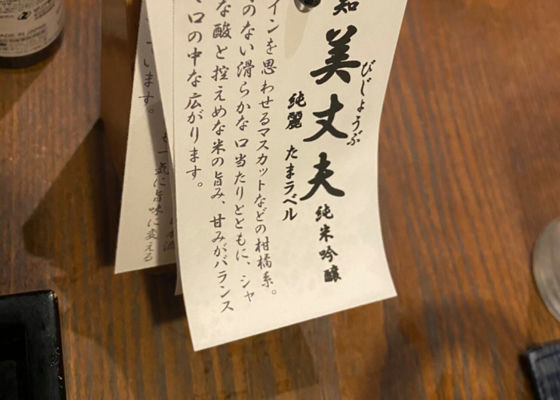 知
美丈夫
びじょうぶ
純米吟醸
純麗 たまラベル
インを思わせるマスカットなどの柑橘系。
のない滑らかな口当たりとともに、シャ
な酸と控えめな米の旨み、甘みがバランス
口の中な広がります。
います。
一気に旨味に変える